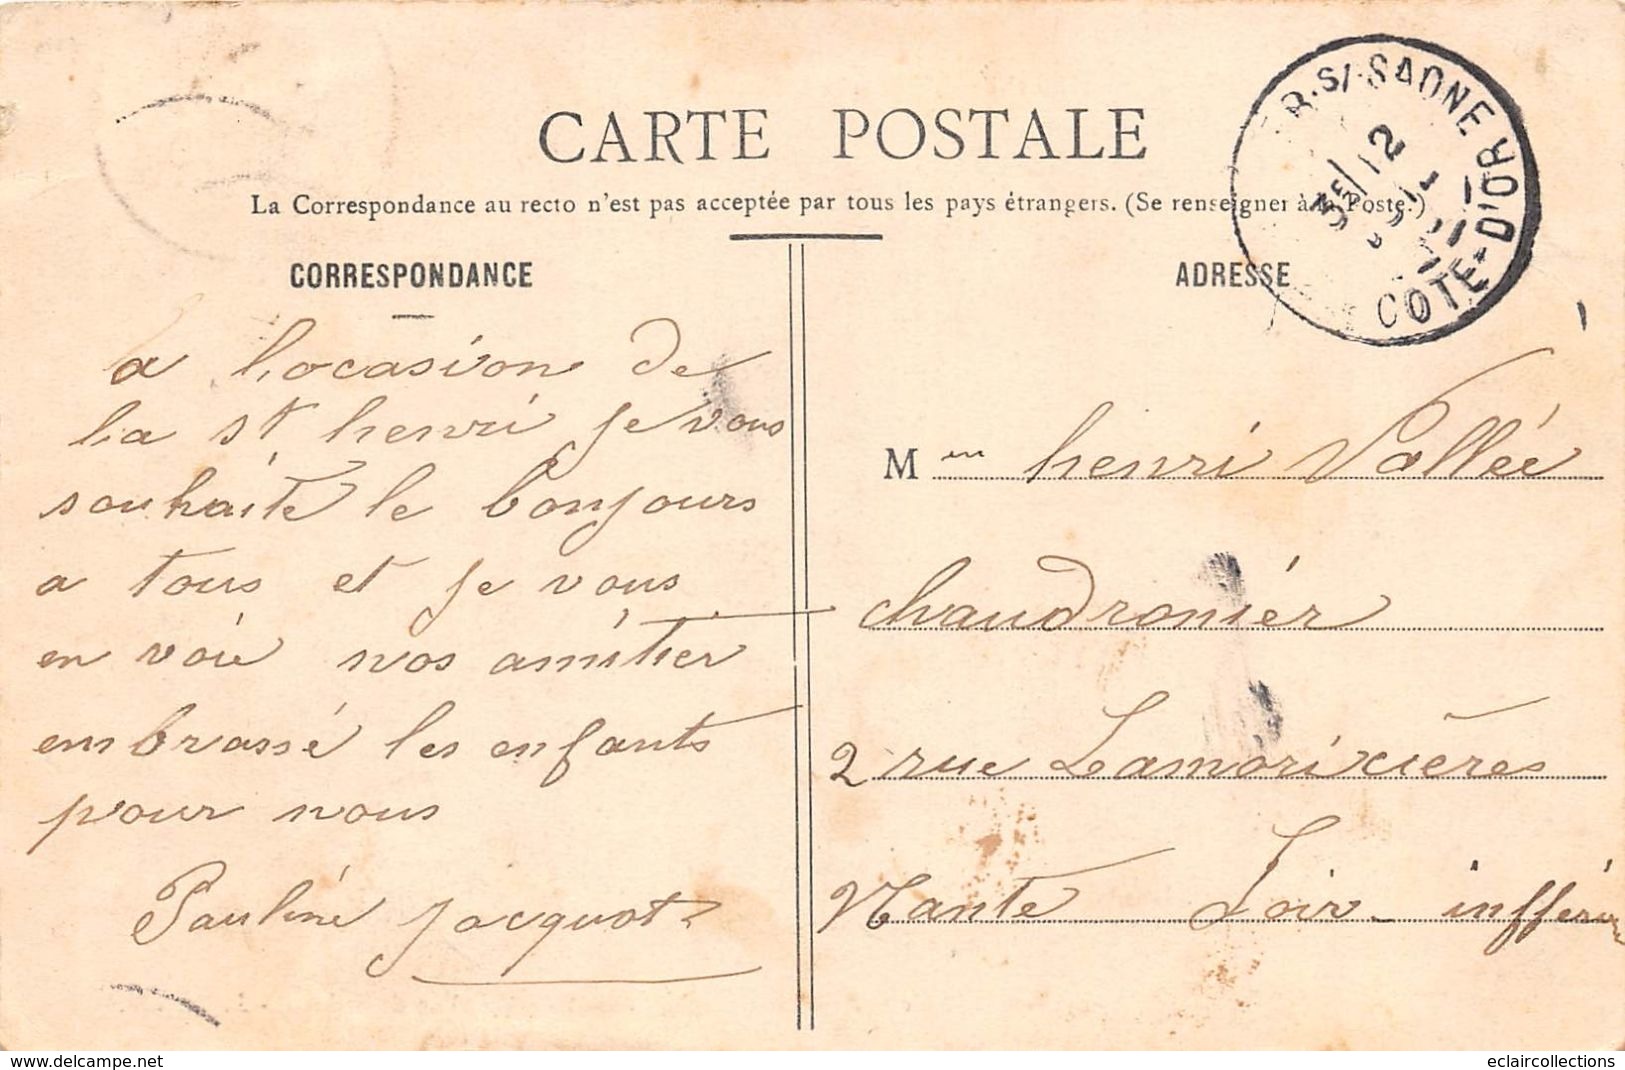 CARTE POSTALE
La Correspondance au recto n'est pas acceptée par tous les pays étrangers. (Se renseigner à la Poste.)
CORRESPONDANCE
a l'ocasion de
la st henri je vous
souhaite le bonjours
a tous et je vous
en voié nos amitier
embrassé les enfants
pour nous
Pauliné jacquot
ADRESSE
M en henri Vallée
chaudroniér
2 rue Lamorixières
Nante Loir infférieur
R. S/ SAONE
COTE-D'OR
www.delcampe.net
eclaircollections